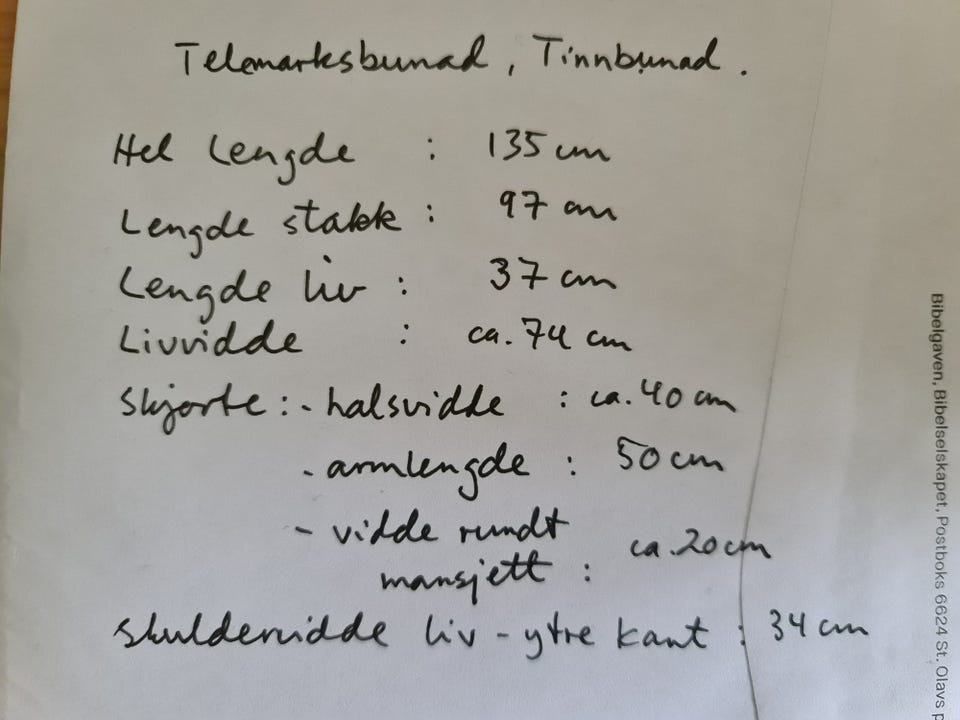 Telemarksbunad, Tinnbunad.
Hel lengde : 135 cm
Lengde stakk : 97 cm
Lengde liv : 37 cm
Livvidde : ca. 74 cm
Skjorte : - halsvidde : ca. 40 cm
- armlengde : 50 cm
- vidde rundt
mansjett : ca. 20 cm
skuldervidde liv - ytre kant : 34 cm
Bibelgaven, Bibelselskapet, Postboks 6624 St. Olavs p